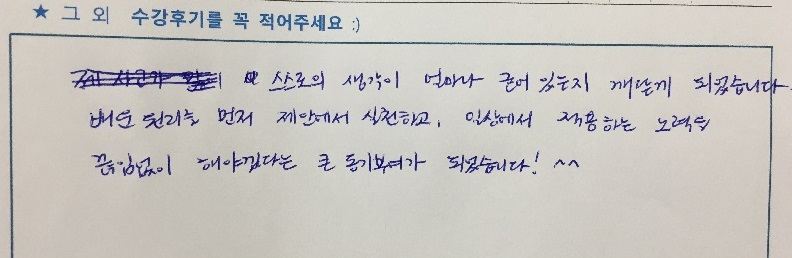 ★ 그 외 수강후기를 꼭 적어주세요 :)
스스로의 생각이 얼마나 굳어 있는지 깨닫게 되었습니다.
배운 원리를 먼저 제안에서 실천하고, 일상에서 적용하는 노력을
끊임없이 해야겠다는 큰 동기부여가 되었습니다! ^^